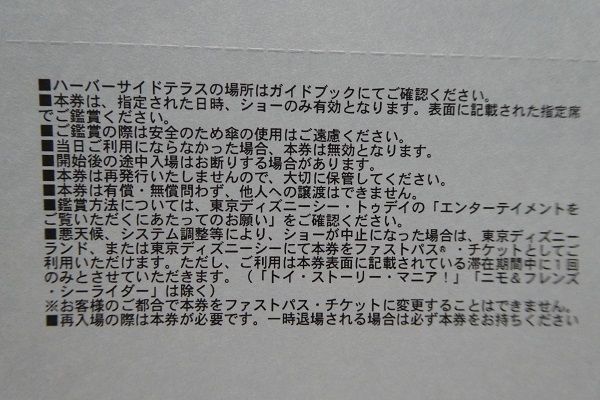 ■ハーバーサイドテラスの場所はガイドブックにてご確認ください。
■本券は、指定された日時、ショーのみ有効となります。表面に記載された指定席
でご鑑賞ください。
■ご鑑賞の際は安全のため傘の使用はご遠慮ください。
■当日ご利用にならなかった場合、本券は無効となります。
■開始後の途中入場はお断りする場合があります。
■本券は再発行いたしませんので、大切に保管してください。
■本券は有償・無償問わず、他人への譲渡はできません。
■鑑賞方法については、東京ディズニーシー・トゥデイの「エンターテイメントを
ご覧いただくにあたってのお願い」をご確認ください。
■悪天候、システム調整等により、ショーが中止になった場合は、東京ディズニー
ランド、または東京ディズニーシーにて本券をファストパス®・チケットとしてご
利用いただけます。ただし、ご利用は本券表面に記載されている滞在期間中に1回
のみとさせていただきます。（「トイ・ストーリー・マニア！」「ニモ＆フレンズ
・シーライダー」は除く）
※お客様のご都合で本券をファストパス・チケットに変更することはできません。
■再入場の際は本券が必要です。一時退場される場合は必ず本券をお持ちください